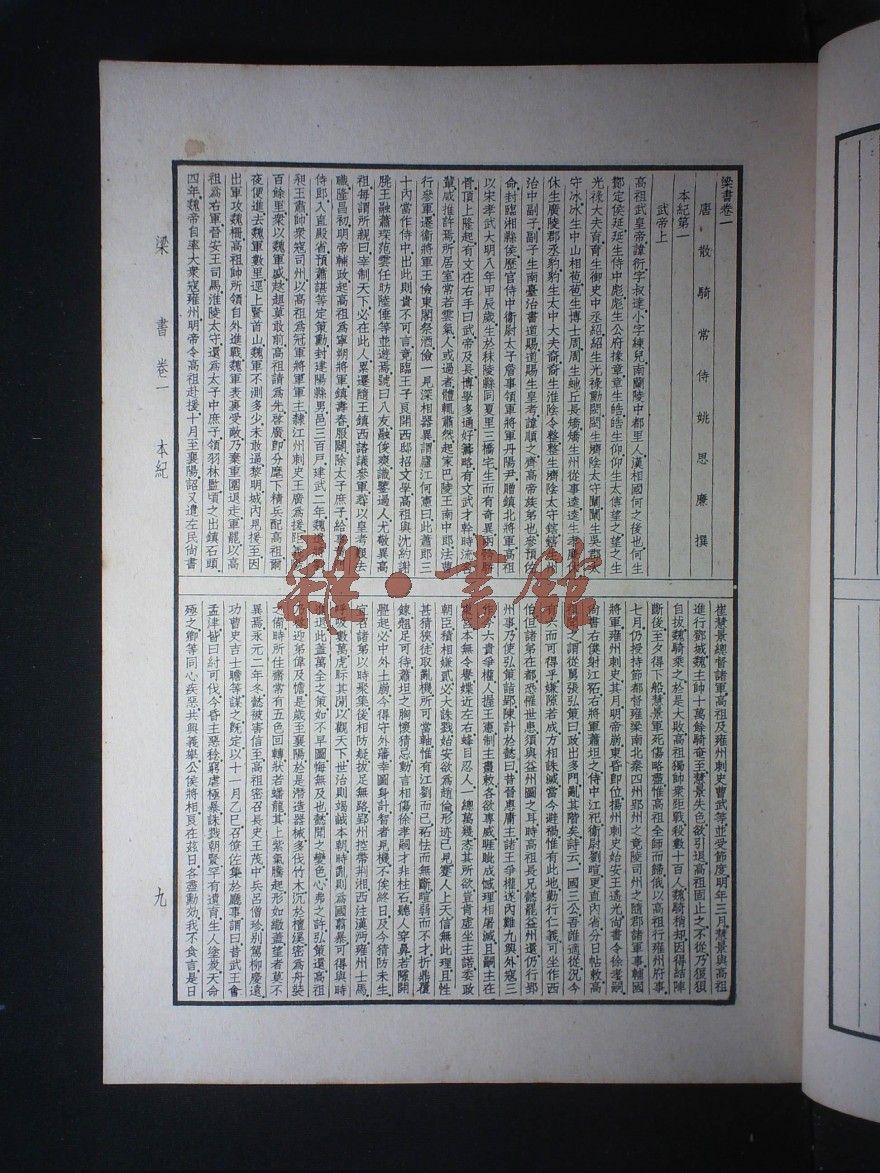 梁書卷一
唐散騎常侍姚思廉撰
本紀第一
武帝上
高祖武皇帝諱衍字叔達小字練兒南蘭陵中都里人漢相國何之後也何生
酇定侯延延生侍中彪彪生公府掾章章生皓皓生仰仰生太傅望之望之生
光祿大夫育育生御史中丞紹紹生光祿勳閎閎生濟陰太守闡闡生吳郡太
守冰冰生中山相苞苞生博士周周生蛇丘長矯矯生州從事逵逵生孝廉休
休生廣陵郡丞豹豹生太中大夫裔裔生淮陰令整整生濟陰太守鎋鎋生州
治中副子副子生南臺治書道賜道賜生皇考諱順之齊高帝族弟也參預佐
命封臨湘縣侯歷官侍中衛尉太子詹事領軍將軍丹陽尹贈鎮北將軍高祖
以宋孝武大明八年甲辰歲生於秣陵縣同夏里三橋宅生而有奇異兩骻駢
骨頂上隆起有文在右手曰武帝及長博學多通好籌略有文武才幹時流名
輩咸推許焉所居室常若雲氣人或過者體輒肅然起家巴陵王南中郎法曹
行參軍遷衛將軍王儉東閣祭酒儉一見深相器異謂廬江何憲曰此蕭郎三
十內當作侍中出此則貴不可言竟陵王子良開西邸招文學高祖與沈約謝
朓王融蕭琛范雲任昉陸倕等並遊焉號曰八友融俊爽識鑒過人尤敬異高
祖每謂所親曰宰制天下必在此人累遷隨王鎮西諮議參軍尋以皇考艱去
職隆昌初明帝輔政起高祖為寧朔將軍鎮壽春服闋除太子庶子給事黃門
侍郎入直殿省預蕭諶等定策勳封建陽縣男邑三百戶建武二年魏遣將劉
昶王肅帥眾寇司州以高祖為冠軍將軍軍主隸江州刺史王廣為援距義陽
百餘里眾以魏軍盛趑趄莫敢前高祖請為先啟廣即分麾下精兵配高祖爾
夜便進去魏軍數里逕上賢首山魏軍不測多少未敢逼黎明城內見援至因
出軍攻魏柵高祖帥所領自外進戰魏軍表裏受敵乃棄重圍退走軍罷以高
祖為右軍晉安王司馬淮陵太守還為太子中庶子領羽林監頃之出鎮石頭
四年魏帝自率大眾寇雍州明帝令高祖赴援十月至襄陽詔又遣左民尚書
崔慧景總督諸軍高祖及雍州刺史曹武等並受節度明年三月慧景與高祖
進行鄧城魏主帥十萬餘騎奄至慧景失色欲引退高祖固止之不從乃狼狽
自拔魏騎乘之於是大敗高祖獨帥眾距戰殺數十百人魏騎稍却因得結陣
斷後至夕得下船慧景軍死傷略盡惟高祖全師而歸俄以高祖行雍州府事
七月仍授持節都督雍梁南北秦四州郢州之竟陵司州之隨郡諸軍事輔國
將軍雍州刺史其月明帝崩東昏即位揚州刺史始安王遙光尚書令徐孝嗣
尚書右僕射江祏右將軍蕭坦之侍中江祀衛尉劉暄更直內省分日帖敕高
祖聞之謂從舅張弘策曰政出多門亂其階矣詩云一國三公吾誰適從況今
有六而可得乎嫌隙若成方相誅滅當今避禍惟有此地勤行仁義可坐作西
伯但諸弟在都恐罹世患須與益州圖之耳時高祖長兄懿罷益州還仍行郢
州事乃使弘策詣郢陳計於懿曰昔晉惠庸主諸王爭權遂內難九興外寇三
作今六貴爭權人握王憲制主畫敕各欲專威睚眦成憾理相屠滅且嗣主在
東宮本無令譽媟近左右蜂目忍人一總萬機恣其所欲豈肯虛坐主諾委政
朝臣積相嫌貳必大誅戮始安欲為趙倫形迹已見蹇人上天信無此理且性
甚猜狹徒取亂機所可當軸惟有江劉而已祏怯而無斷暄弱而不才折鼎覆
餗翹足可待蕭坦之胸懷猜忌動言相傷徐孝嗣才非柱石聽人穿鼻若隙開
釁起必中外土崩今得守外藩幸圖身計智者見機不俟終日及今猜防未生
宜召諸弟以時聚集後相防疑拔足無路郢州控帶荊湘西注漢沔雍州士馬
呼吸數萬虎眎其間以觀天下世治則竭誠本朝時亂則為國翦暴可得與時
進退此蓋萬全之策如不早圖悔無及也懿聞之變色心弗之許弘策還高祖
乃啟迎弟偉及憺是歲至襄陽於是潛造器械多伐竹木沉於檀溪密為舟裝
之備時所住齋常有五色回轉狀若蟠龍其上紫氣騰起形如繖蓋望者莫不
異焉永元二年冬懿被害信至高祖密召長史王茂中兵呂僧珍別駕柳慶遠
功曹史吉士瞻等謀之既定以十一月乙巳召僚佐集於廳事謂曰昔武王會
孟津皆曰紂可伐今昏主惡稔窮虐極暴誅戮朝賢罕有遺育生人塗炭天命
殛之卿等同心疾惡共興義舉公侯將相良在茲日各盡勳效我不食言是日
梁書卷一 本紀
九
雜·書館